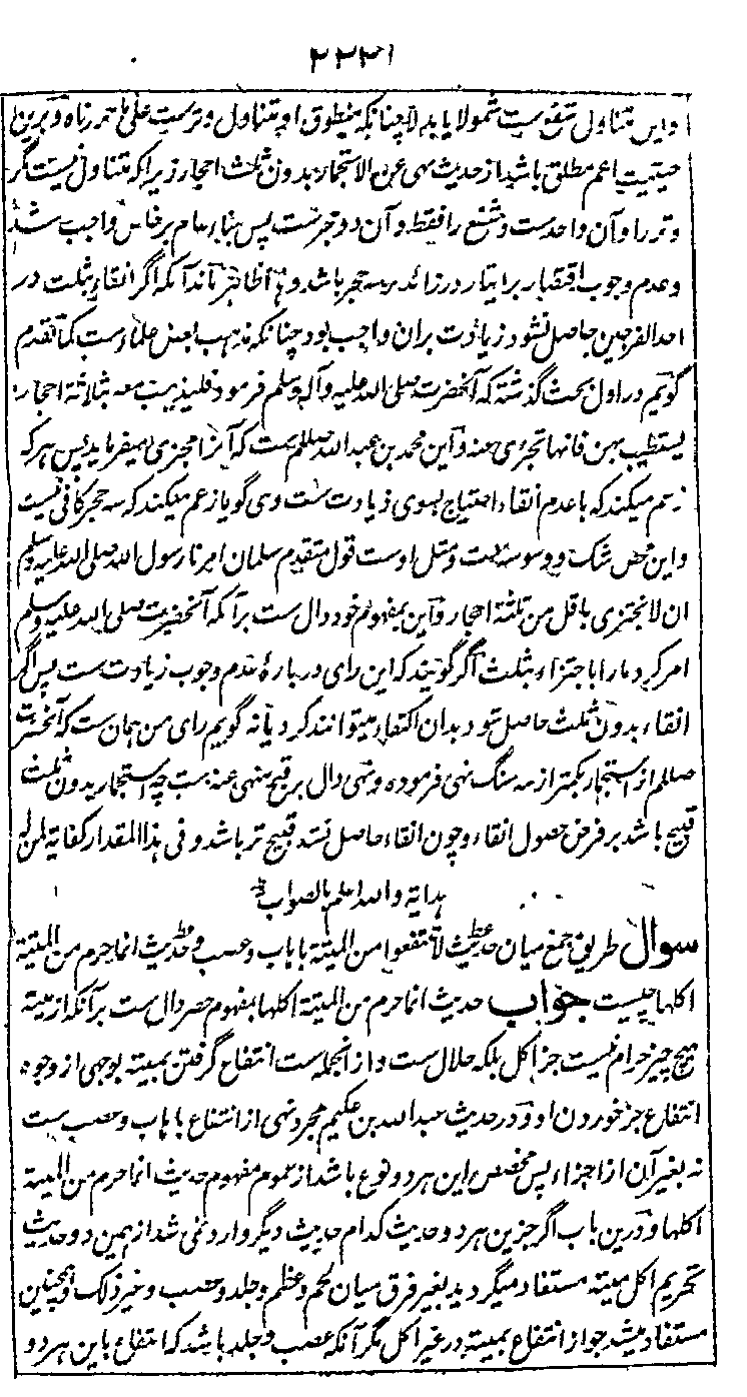 ۲۲۲۱
واین متناول شفع ست شمولا یا بدلا چنانکه منطوق او متناول وترست علی ما قررناه وبرین
حیثیت اعم مطلق باشد از حدیث نهی عن الاستجمار بدون ثلث احجار زیرا که متناول نیست مگر
وتر را وآن واحد ست وشفع را فقط وآن دو حجرست پس بناء عام بر خاص واجب شد
وعدم وجوب اقتصار بر ایتار در زائد بر سه حجر باشد وهذا ظاهر ماند آنکه اگر انقاء بثلث در
احد الفرجین حاصل نشود زیادت بران واجب بود چنانکه مذهب بعض علماء ست کما تقدم
گوئیم در اول بحث گذشته که آنحضرت صلی الله علیه وآله وسلم فرمود فلیذهب معه بثلاثة احجار
یستطیب بهن فانها تجزی عنه واین محمد بن عبد الله صللم ست که آنرا مجزی میفرماید پس هر که
زعم میکند که با عدم انقاء احتیاج بسوی زیادت ست وی گویا زعم میکند که سه حجر کافی نیست
واین محض شک ووسوسه ست ومثل اوست قول متقدم سلمان امرنا رسول الله صلی الله علیه وسلم
ان لا نجتزی باقل من ثلثة احجار واین بمفهوم خود دال ست بر آنکه آنحضرت صلی الله علیه وسلم
امر کرد ما را با جتزاء بثلث اگر گویند که این رای در بارهٔ عدم وجوب زیادت ست پس اگر
انقاء بدون ثلث حاصل شود بدان اکتفاء میتوانند کرد یا نه گویم رای من همان ست که آنحضرت
صللم از استجمار بکمتر از سه سنگ نهی فرموده ونهی دال بر قبح منهی عنه ست چه استجمار بدون ثلث
قبیح باشد بر فرض حصول انقاء وچون انقاء حاصل نشد قبیح تر باشد وفی هذا المقدار کفایة لمن له
هدایة والله اعلم بالصواب
سوال طریق جمع میان حدیث لا تنتفعوا من المیتة باهاب وعصب وحدیث انما حرم من المیتة
اکلها چیست جواب حدیث انما حرم من المیتة اکلها بمفهوم حصر دال ست بر آنکه از میته
هیچ چیز حرام نیست جز اکل بلکه حلال ست واز انجمله ست انتفاع گرفتن بمیته بوجهی از وجوه
انتفاع جز خوردن او ودر حدیث عبد الله بن عکیم مجرد نهی از انتفاع باهاب وعصب ست
نه بغیر آن از اجزاء پس مخصص این هر دو نوع باشد از عموم مفهوم حدیث انما حرم من المیتة
اکلها ودرین باب اگر جزین هر دو حدیث کدام حدیث دیگر وارد نمی شد از همین دو حدیث
تحریم اکل میته مستفاد میگردید بغیر فرق میان لحم وعظم وجلد وعصب وغیر ذلک وهمچنین
مستفاد میشد جواز انتفاع بمیته در غیر اکل مگر آنکه عصب وجلد باشد که انتفاع باین هر دو